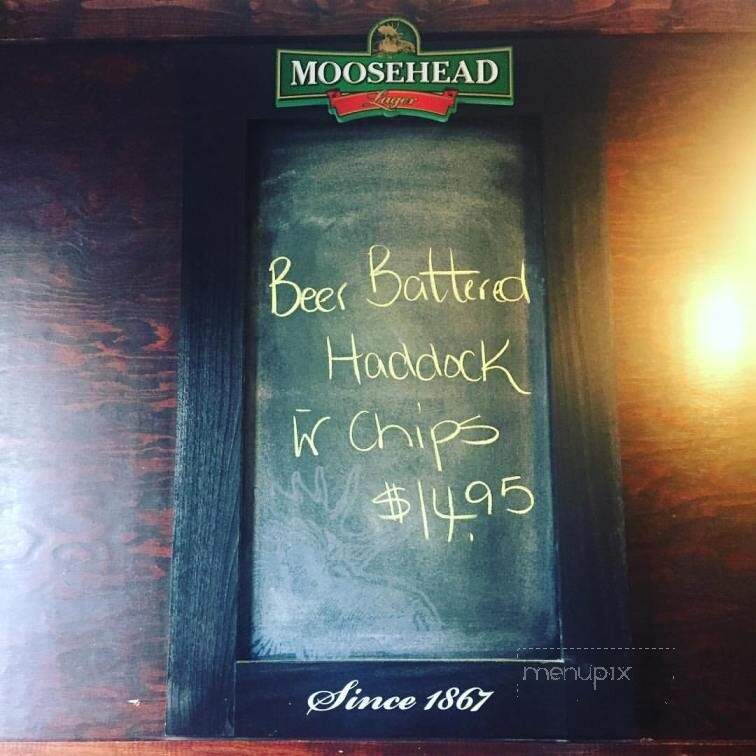 MOOSEHEAD
Lager
Beer Battered
Haddock
w Chips
$14.95
Since 1867
menupix